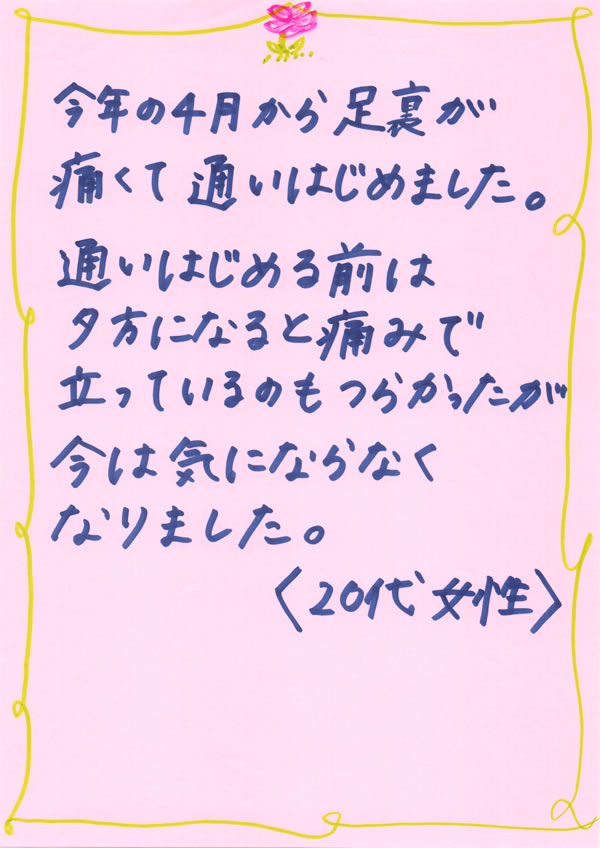 今年の4月から足裏が
痛くて通いはじめました。
通いはじめる前は
夕方になると痛みで
立っているのもつらかったが
今は気にならなく
なりました。
〈20代女性〉